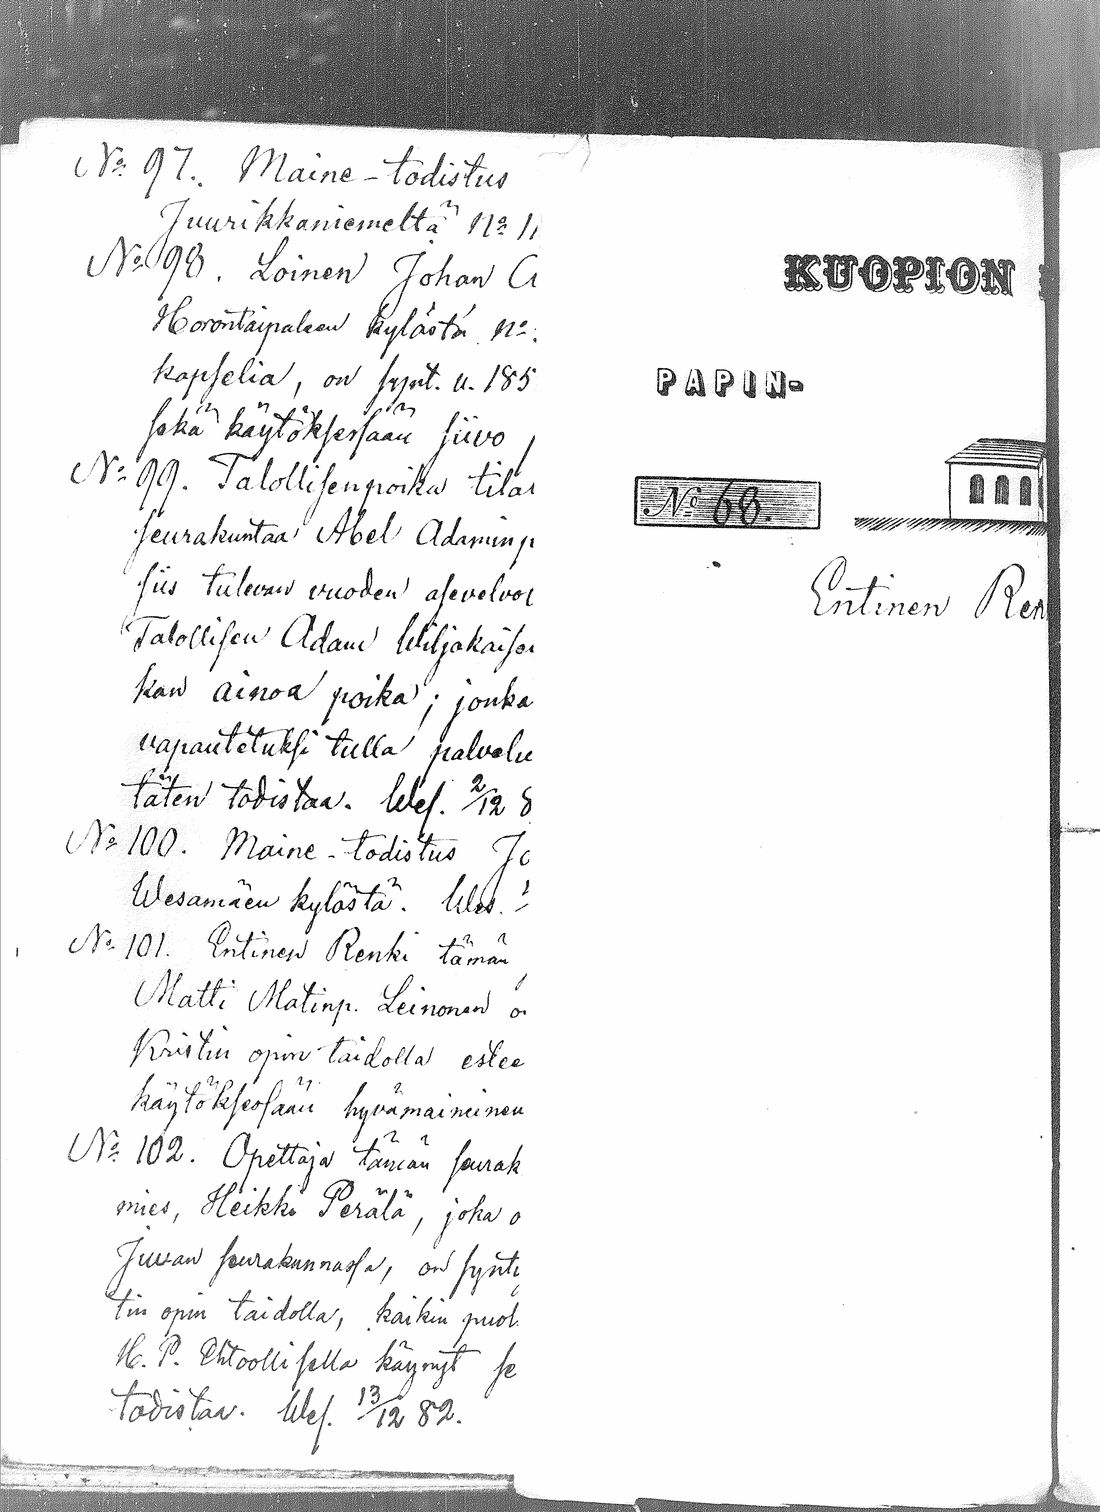 No 97. Maine-todistus
Juurikkaniemeltä No 11
No 98. Loinen Johan
Horontaipaleen kylästä No
kapselia, on synt. v. 185
sekä käytöksessään siivo
No 99. Talollisenpoika
seurakuntaa Abel Adaminp
siis tulevan vuoden asevelvol
Talollisen Adam Wiljakaisen
kan ainoa poika; jonka
vapautetuksi tulla palvelu
täten todistaa. Wes. 2/12 8
No 100. Maine-todistus Jo
Wesamäen kylästä. Wes.
No 101. Entinen Renki tämän
Matti Matinp. Leinonen o
Kristin opin taidolla estee
käytöksessään hyvämaineinen
No 102. Opettaja tämän seurak
mies, Heikki Perälä, joka o
Juvan seurakunnassa, on synty
tin opin taidolla, kaikin puol
H. P. Ehtoollisella käynyt se
todistaa. Wes. 13/12 82.
KUOPION
PAPIN-
No 68.
Entinen Ren